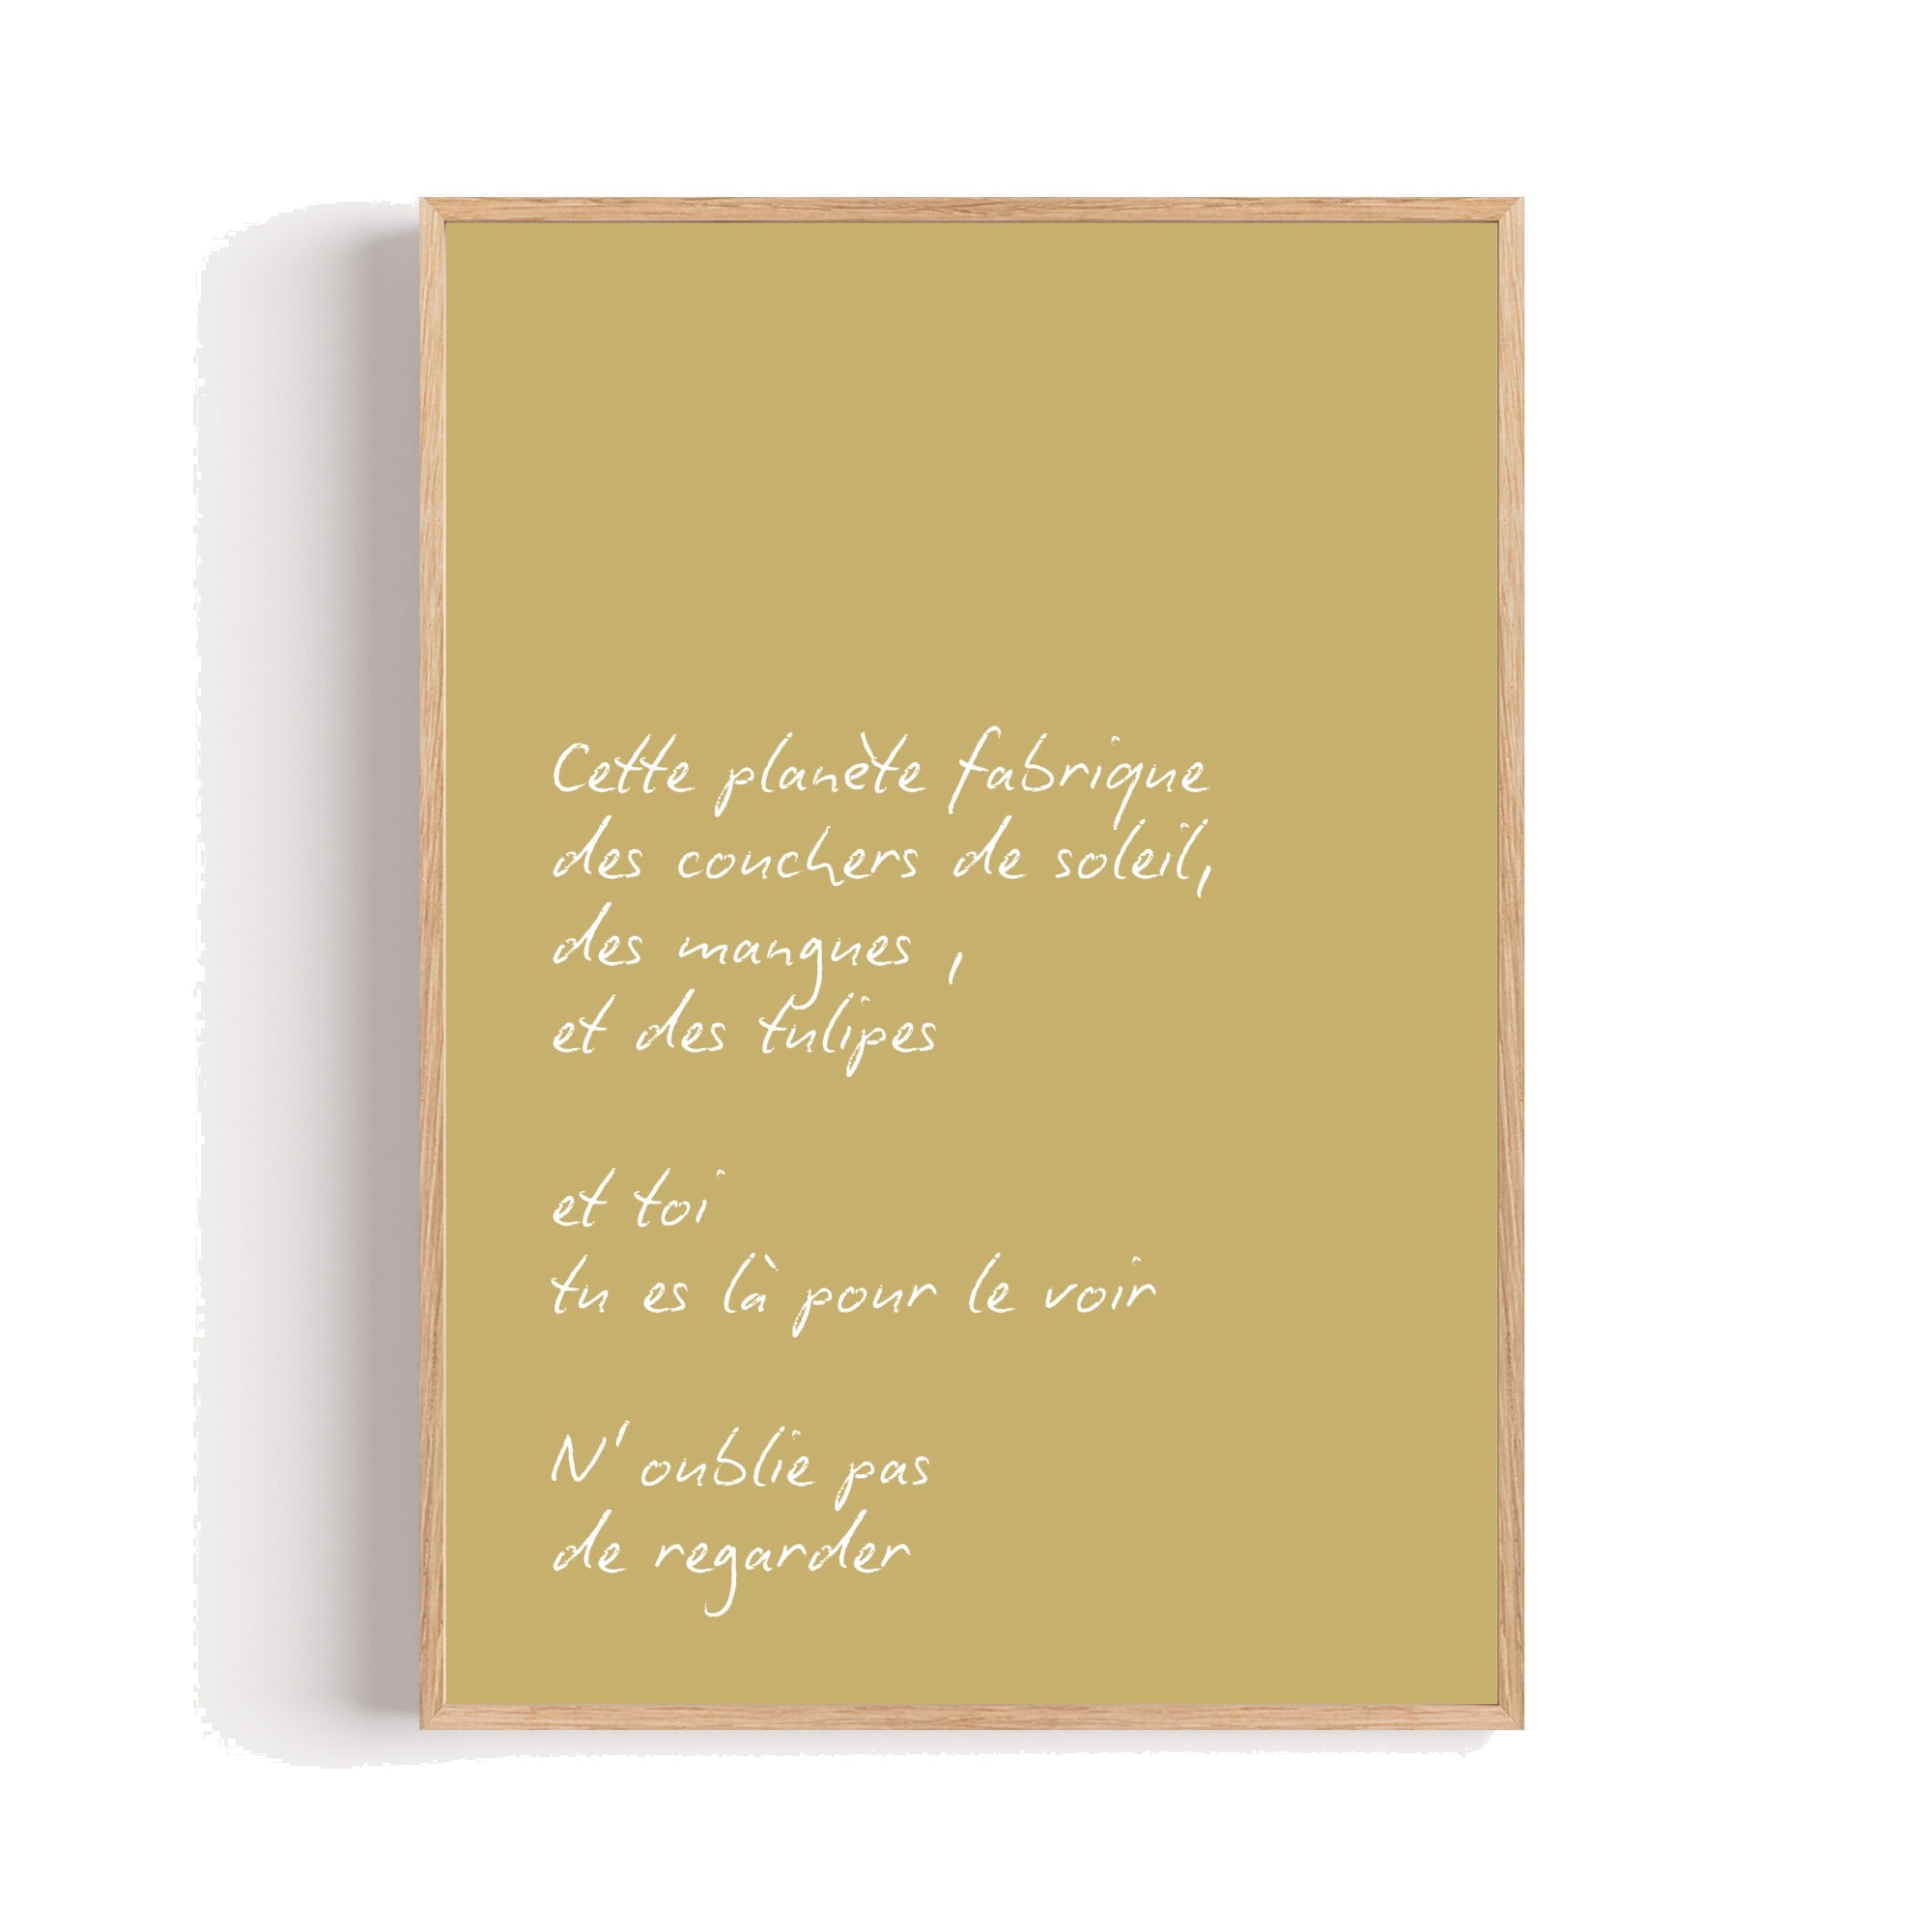 Cette planète fabrique
des couchers de soleil,
des mangues ,
et des tulipes
et toi
tu es là pour le voir
N'oublie pas
de regarder